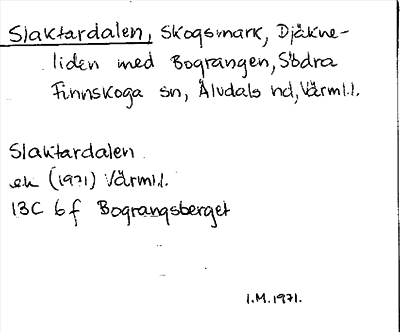 Slaktardalen, Skogsmark, Djäkne-
liden med Bogrängen, Södra
Finnskoga sn, Älvdals hd, Värml.l.
Slaktardalen
ek (1971) Värml.l.
13C 6f Bograngsberget
I.M. 1971.